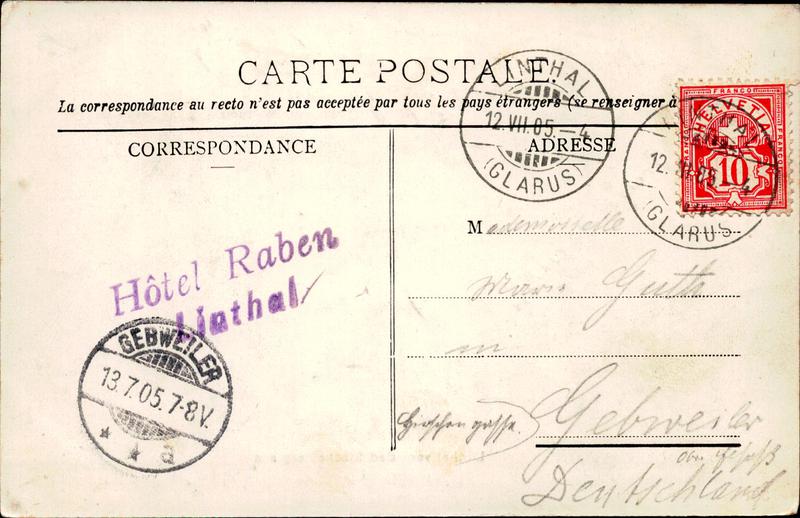 CARTE POSTALE.
La correspondance au recto n'est pas acceptée par tous les pays étrangers (se renseigner à
CORRESPONDANCE
ADRESSE
LINTHAL
12.VII.05.-4
(GLARUS)
FRANCO
HELVETIA
10
12.VII.05.-4
(GLARUS)
Mademoiselle
Marie
in
Hirschengasse.
Gebweiler
Deutschland
Hôtel Raben
Linthal
GEBWEILER
13.7.05.7-8V.
* * a